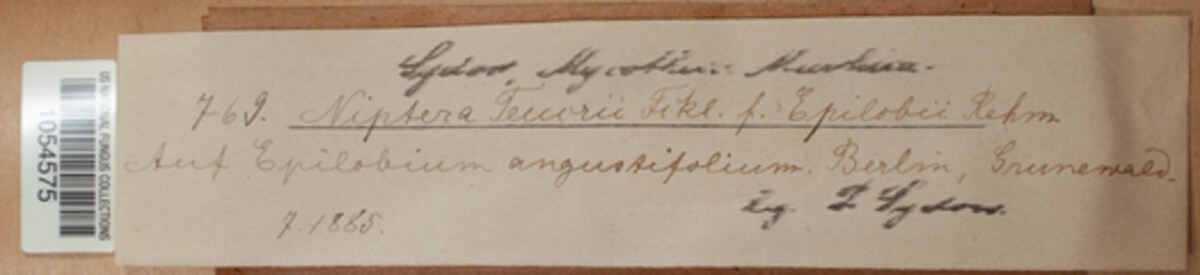 Sydow, Mycotheca Marchica.
769. Niptera Teucrii Fckl. f. Epilobii Rehm
Auf Epilobium angustifolium. Berlin, Grunewald.
leg. P. Sydow.
7.1885.
US NATIONAL FUNGUS COLLECTIONS
1054575